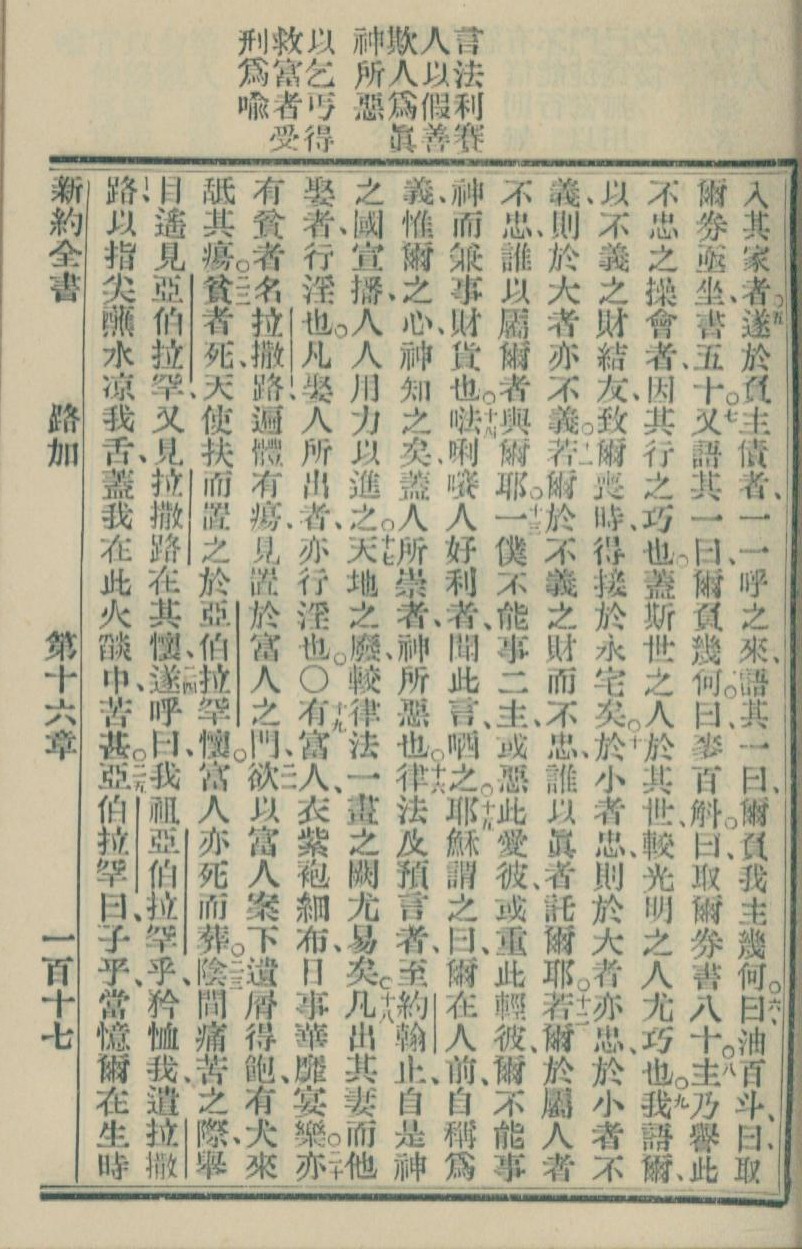 言法利賽
人以假善
欺人爲眞
神所惡
以乞丐得
救富者受
刑爲喩
入其家者、○五遂於負主債者、一一呼之來、語其一曰、爾負我主幾何、○六曰油百斗、曰、取
爾券亟坐、書五十、○七又語其一曰、爾負幾何、曰、麥百斛、曰、取爾券書八十、○八主乃譽此
不忠之操會者、因其行之巧也、蓋斯世之人於其世、較光明之人尤巧也、○九我語爾、
以不義之財結友、致爾喪時、得接於永宅矣、○十於小者忠、則於大者亦忠、於小者不
義、則於大者亦不義、○十一若爾於不義之財而不忠、誰以眞者託爾耶、○十二若爾於屬人者
不忠、誰以屬爾者與爾耶、○十三一僕不能事二主、或惡此愛彼、或重此輕彼、爾不能事
神而兼事財貨也、○十四㗲唎㘔人好利者、聞此言、哂之、○十五耶穌謂之曰、爾在人前、自稱爲
義、惟爾之心、神知之矣、蓋人所崇者、神所惡也、○十六律法及預言者、至約翰止、自是神
之國宣播、人人用力以進之、○十七天地之廢、較律法一畫之闕尤易矣、○十八凡出其妻而他
娶者、行淫也、凡娶人所出者、亦行淫也、○十九有富人、衣紫袍細布、日事華靡宴樂、○二十亦
有貧者名拉撒路、遍體有瘍、見置於富人之門、二一欲以富人案下遺屑得飽、有犬來
舐其瘍、○二二貧者死、天使扶而置之於亞伯拉罕懷、富人亦死而葬、○二三陰間痛苦之際、舉
目遙見亞伯拉罕、又見拉撒路在其懷、二四遂呼曰、我祖亞伯拉罕乎、矜恤我、遣拉撒
路、以指尖蘸水凉我舌、蓋我在此火燄中、苦甚、○二五亞伯拉罕曰、子乎、當憶爾在生時
新約全書 路加 第十六章 一百十七